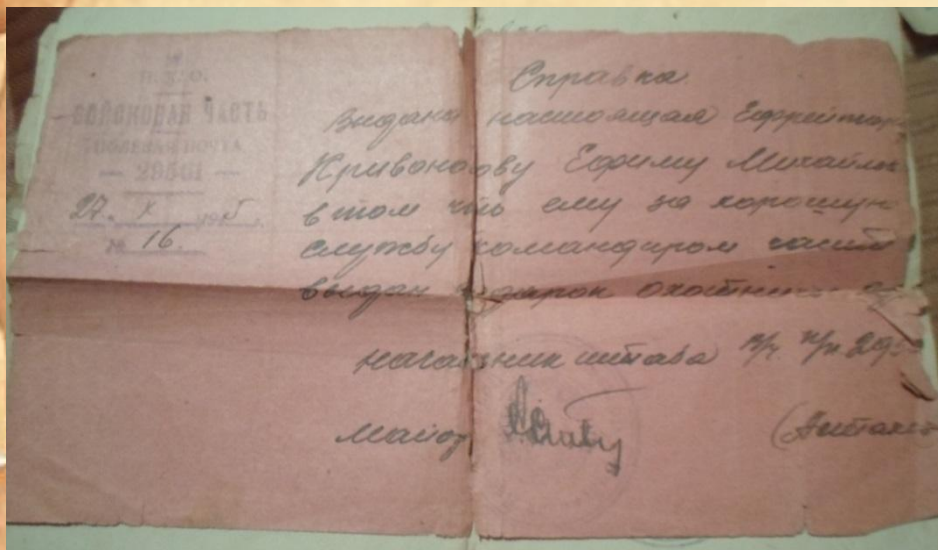 ВОЙСКОВАЯ ЧАСТЬ
ПОЛЕВАЯ ПОЧТА
27. X 1945г.
№ 16.
Справка
Выдана настоящая Ефрейтору
Ефиму Михайлов
в том что ему за хорошую
службу командиром части
выдан подарок
начальник штаба в/ч п/п
Майор